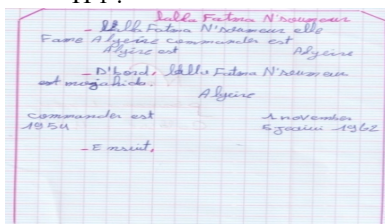 Lalla Fatma N'soumeur
- Lalla Fatma N'soumeur elle
Fame Algerie commander est
Algeire est Algeire
- D'bord, Lalla Fatma N'soumeur
est mogahida.
Algeire
commander est 1 november
1954 5 1962
- Ensuit,